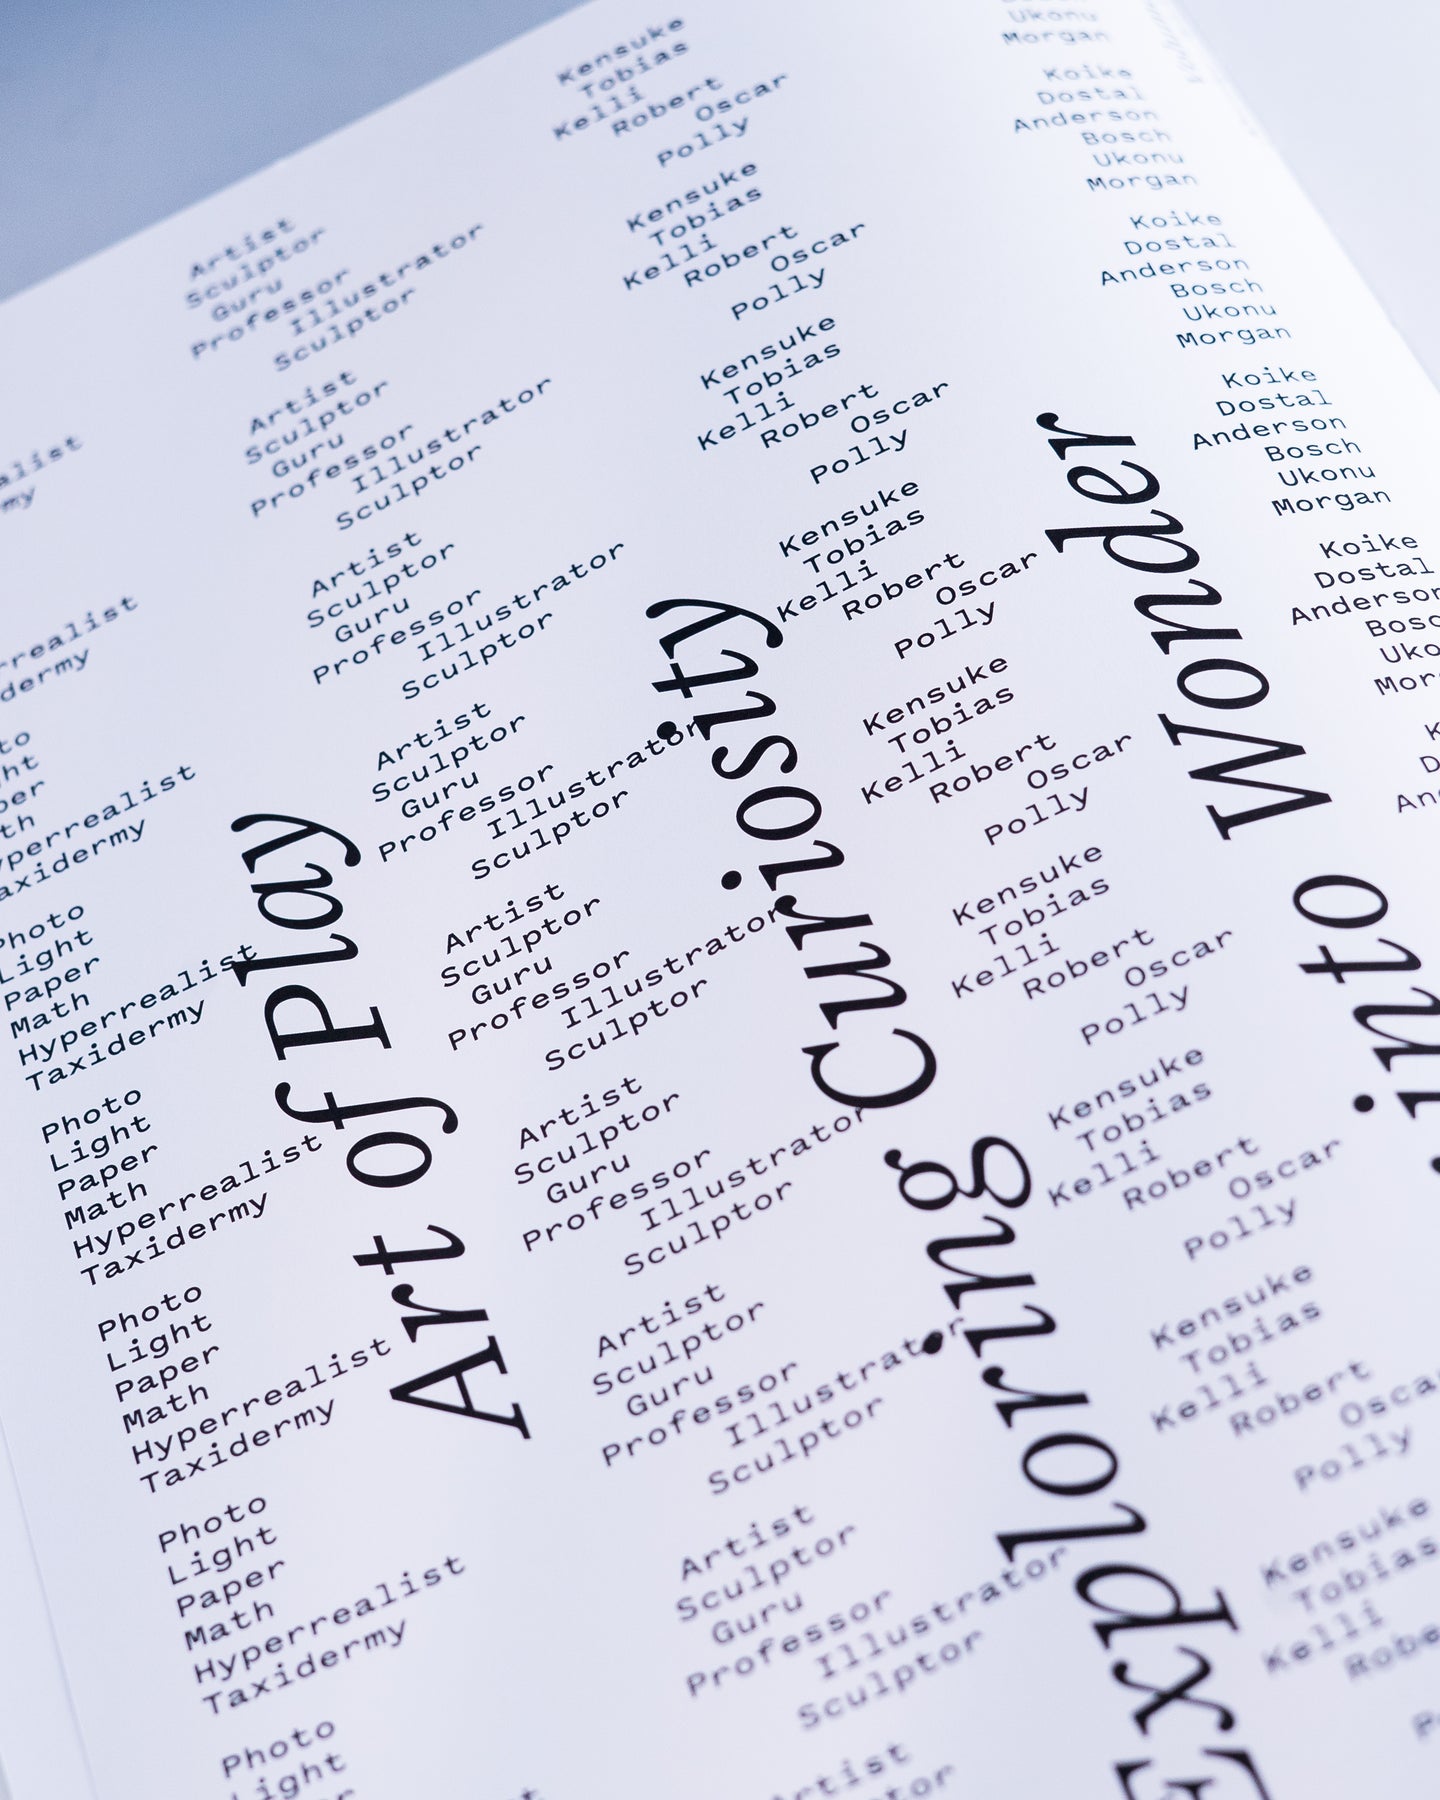 alist
my
rrealist
dermy
to
ht
per
th
yperrealist
axidermy
Photo
Light
Paper
Math
Hyperrealist
Taxidermy
Photo
Light
Paper
Math
Hyperrealist
Taxidermy
Photo
Light
Paper
Math
Hyperrealist
Taxidermy
Photo
Light
Paper
Math
Hyperrealist
Taxidermy
Photo
Light
Art of Play
Artist
Sculptor
Guru
Professor
Illustrator
Sculptor
Artist
Sculptor
Guru
Professor
Illustrator
Sculptor
Artist
Sculptor
Guru
Professor
Illustrator
Sculptor
Artist
Sculptor
Guru
Professor
Illustrator
Sculptor
Artist
Sculptor
Guru
Professor
Illustrator
Sculptor
Artist
Sculptor
Guru
Professor
Illustrator
Sculptor
Artist
Sculptor
Guru
Professor
Illustrator
Sculptor
Artist
Sculptor
Guru
Professor
Illustrator
Sculptor
Artist
Exploring Curiosity
Kensuke
Tobias
Kelli
Robert
Oscar
Polly
Kensuke
Tobias
Kelli
Robert
Oscar
Polly
Kensuke
Tobias
Kelli
Robert
Oscar
Polly
Kensuke
Tobias
Kelli
Robert
Oscar
Polly
Kensuke
Tobias
Kelli
Robert
Oscar
Polly
Kensuke
Tobias
Kelli
Robert
Oscar
Polly
Kensuke
Tobias
Kelli
Robert
Oscar
Polly
Kensuke
Tobias
Kelli
Robert
Oscar
Polly
Kensuke
Tobias
Kelli
Robe
into Wonder
Ukonu
Morgan
Koike
Dostal
Anderson
Bosch
Ukonu
Morgan
Koike
Dostal
Anderson
Bosch
Ukonu
Morgan
Koike
Dostal
Anderson
Bosch
Ukonu
Morgan
Koike
Dostal
Anderson
Bosc
Uko
Mor
K
D
An